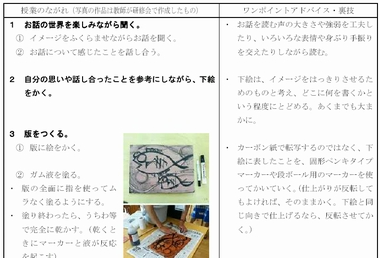 授業のながれ（写真の作品は教師が研修会で作成したもの）
ワンポイントアドバイス・裏技
1 お話の世界を楽しみながら聞く。
① イメージをふくらませながらお話を聞く。
② お話について感じたことを話し合う。
・ お話を読む声の大きさや強弱を工夫し
たり、いろいろな表情や身ぶり手振り
を交えたりしながら読む。
2 自分の思いや話し合ったことを参考にしながら、下絵
をかく。
・ 下絵は、イメージをはっきりさせるた
めのものと考え、どこに何を書くかと
いう程度にとどめる。あくまでも大ま
かに。
3 版をつくる。
① 版に絵をかく。
② ガム液を塗る。
・ 版の全面に指を使ってム
ラなく塗るようにする。
・ 塗り終わったら、うちわ等
で完全に乾かす。（乾くと
きにマーカーと液が反応
を起こす）
・ カーボン紙で転写するのではなく、下
絵に表したことを、固形ペンキタイプ
マーカーや段ボール用のマーカーを使
ってかいていく。（仕上がりが反転して
もよければ、そのままかく。下絵と同
じ向きで仕上げるなら、反転させてか
く。）